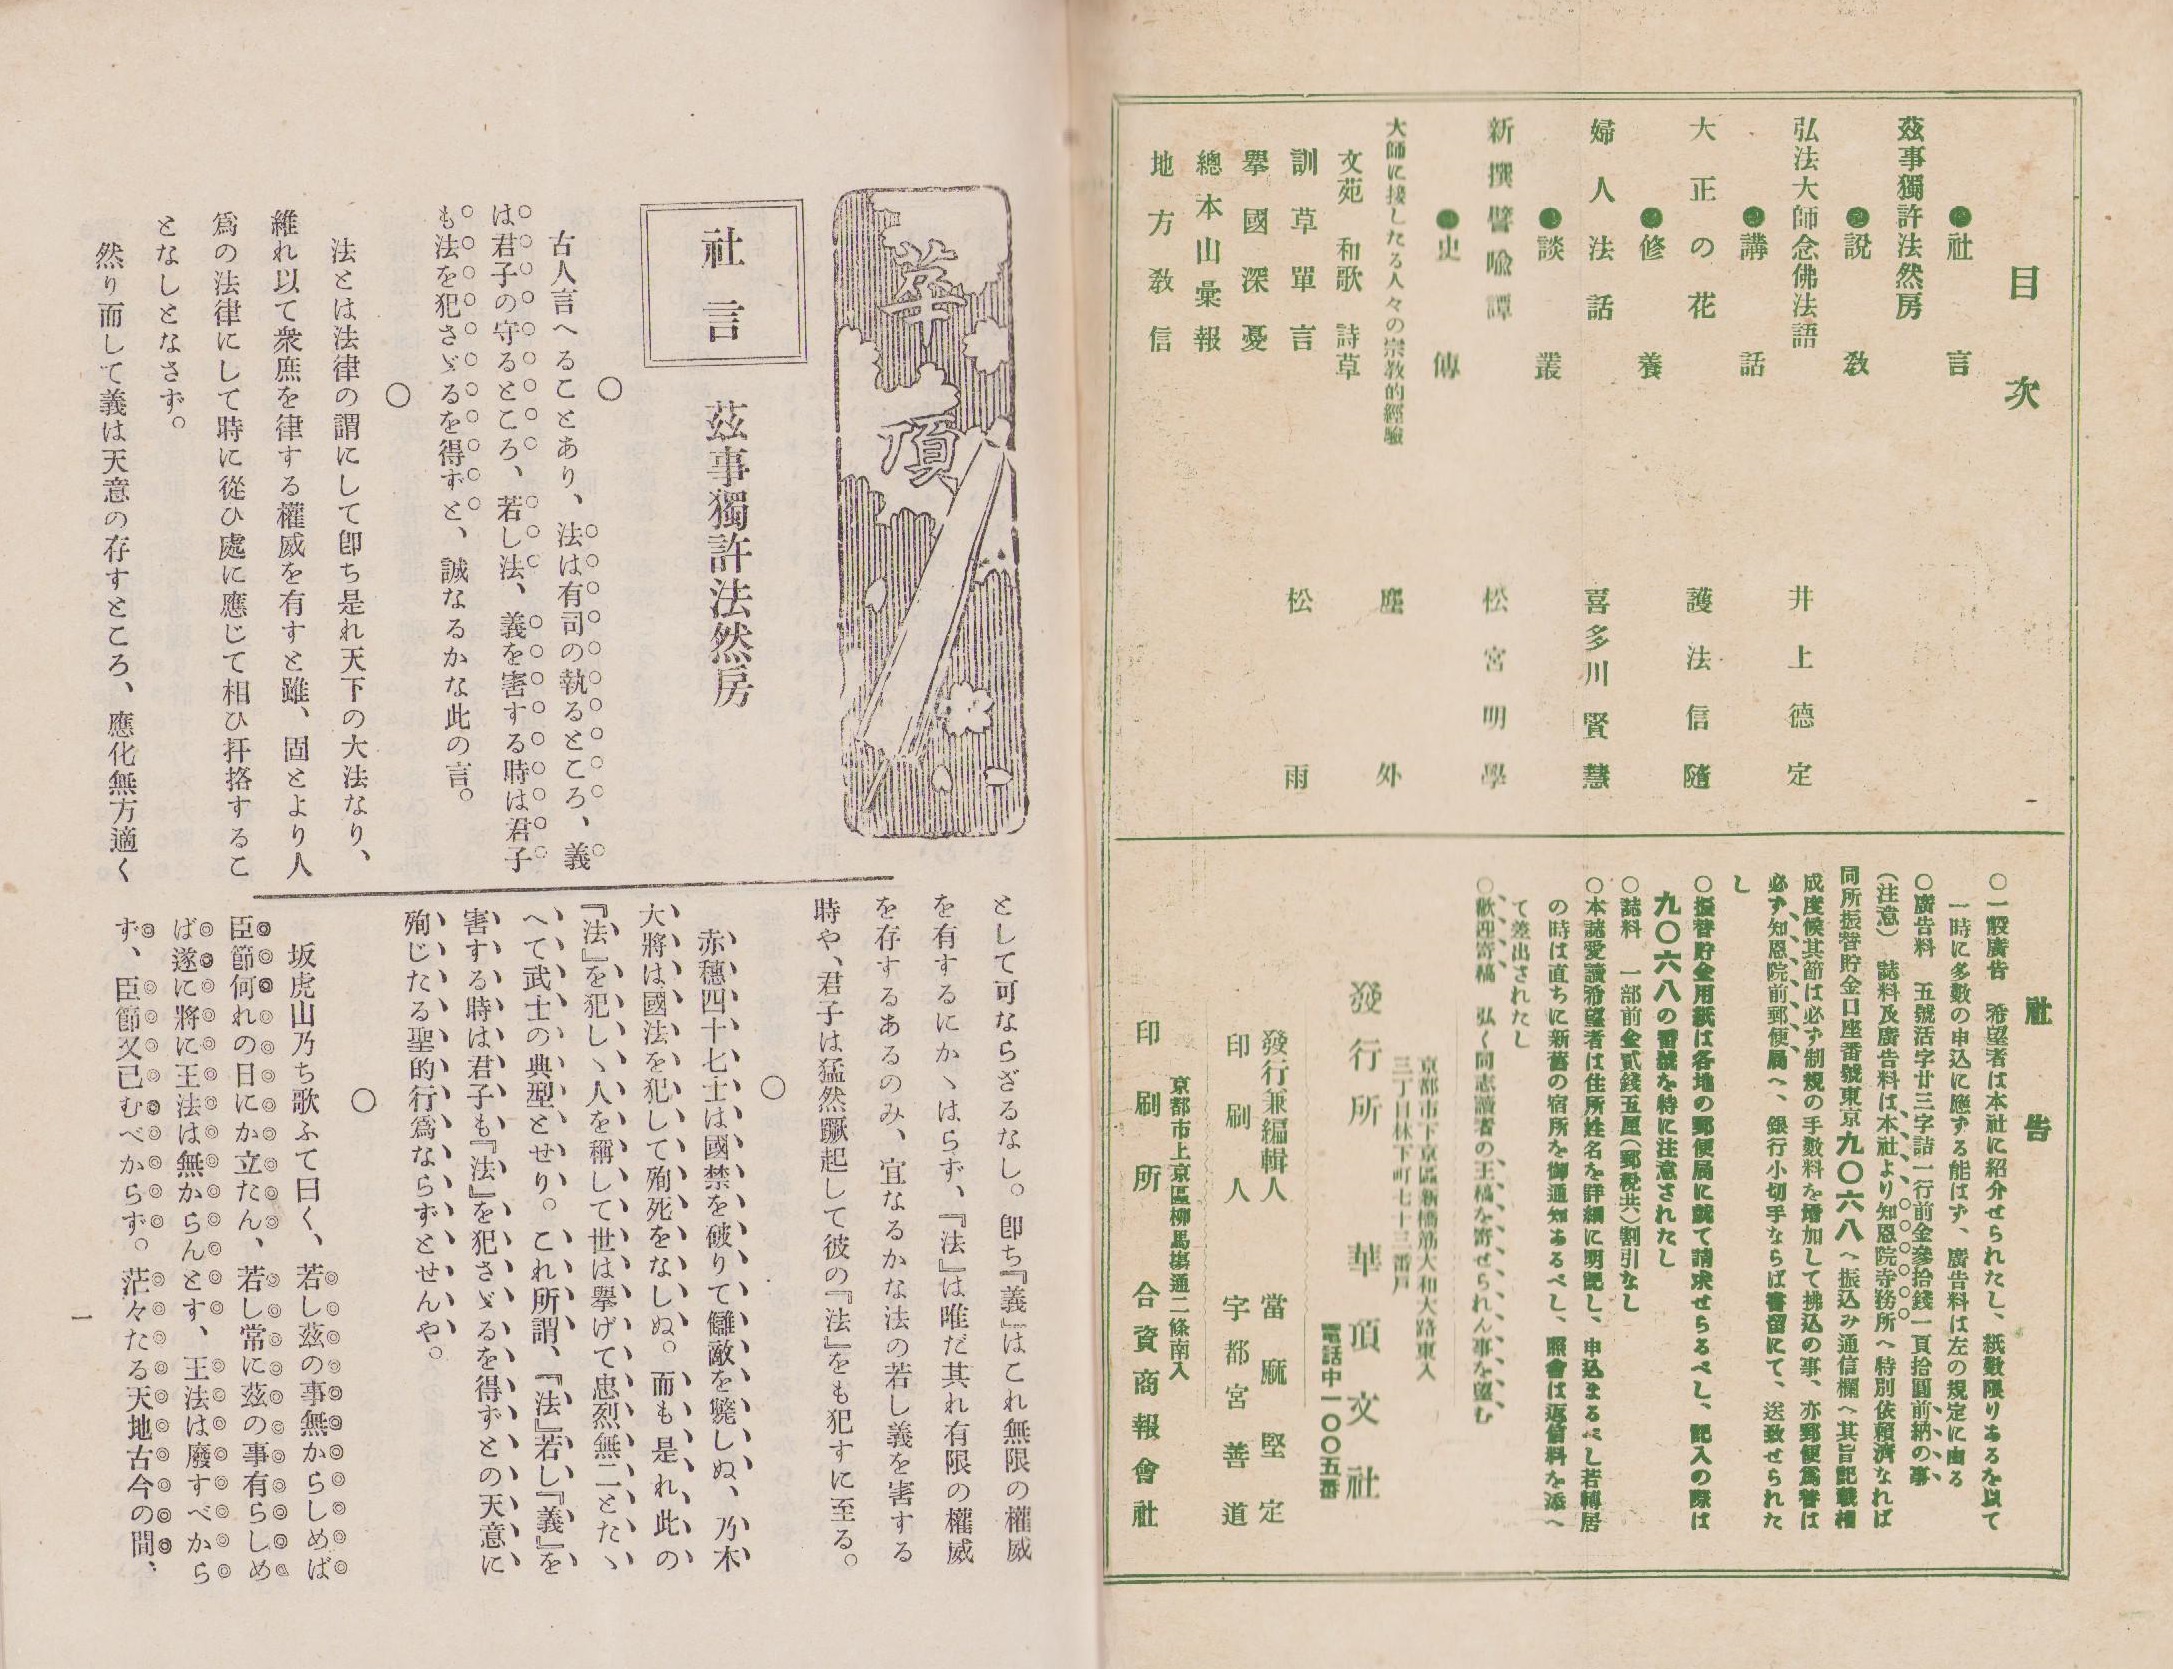 目次
●社言
茲事獨許法然房
●説教
弘法大師念佛法語 井上德定
●講話
大正の花 護法信隨
●修養
婦人法話 喜多川賢慧
●談叢
新撰譬喩譚 松宮明學
●史傳
大師に接したる人々の宗敎的經驗 塵外
文苑 和歌 詩草
訓草單言 松雨
擧國深憂
總本山彙報
地方敎信
社告
○一般廣告 希望者は本社に紹介せられたし、紙數限りあるを以て
一時に多數の申込に應ずる能はず、廣告料は左の規定に由る
○廣告料 五號活字廿三字詰一行前金參拾錢一頁拾圓前納の事
(注意) 誌料及廣告料は本社より知恩院寺務所へ特別依賴濟なれば
同所振替貯金口座番號東京九〇六八へ振込み通信欄へ其旨記載相
成度候其節は必ず制規の手數料を增加して拂込の事、亦郵便爲替は
必ず知恩院前郵便局へ、銀行小切手ならば書留にて、送致せられた
し
○振替貯金用紙は各地の郵便局に就て請求せらるべし、記入の際は
九〇六八の番號を特に注意されたし
○誌料 一部前金貳錢五厘(郵稅共)割引なし
○本誌愛讀希望者は住所姓名を詳細に明記し、申込まるべし若轉居
の時は直ちに新舊の宿所を御通知あるべし、照會は返信料を添へ
て差出されたし
○歡迎寄稿 弘く同志讀者の玉稿を寄せられん事を望む
京都市下京區新橋筋大和大路東入
三丁目林下町七十三番戶
發行所 華頂文社
電話中一〇〇五番
發行兼編輯人 當麻堅定
印刷人 宇都宮善道
京都市上京區柳馬塲通二條南入
印刷所 合資商報會社
華頂
社言
茲事獨許法然房
古人言へることあり、法は有司の執るところ、義
は君子の守るところ、若し法、義を害する時は君子
も法を犯さゞるを得ずと、誠なるかな此の言。
○
法とは法律の謂にして卽ち是れ天下の大法なり、
維れ以て衆庶を律する權威を有すと雖、固とより人
爲の法律にして時に從ひ處に應じて相ひ扞挌するこ
となしとなさず。
然り而して義は天意の存すところ、應化無方適く
として可ならざるなし。卽ち『義』はこれ無限の權威
を有するにかゝはらず、『法』は唯だ其れ有限の權威
を存するあるのみ、宜なるかな法の若し義を害する
時や、君子は猛然蹶起して彼の『法』をも犯すに至る。
○
赤穗四十七士は國禁を破りて讎敵を斃しぬ、乃木
大將は國法を犯して殉死をなしぬ。而も是れ此の
『法』を犯しゝ人を稱して世は擧げて忠烈無二とたゝ
へて武士の典型とせり。これ所謂、『法』若し『義』を
害する時は君子も『法』を犯さゞるを得ずとの天意に
殉じたる聖的行爲ならずとせんや。
○
坂虎山乃ち歌ふて曰く、若し茲の事無からしめば
臣節何れの日にか立たん、若し常に茲の事有らしめ
ば遂に將に王法は無からんとす、王法は廢すべから
ず、臣節又已むべからず。茫々たる天地古今の間、
一